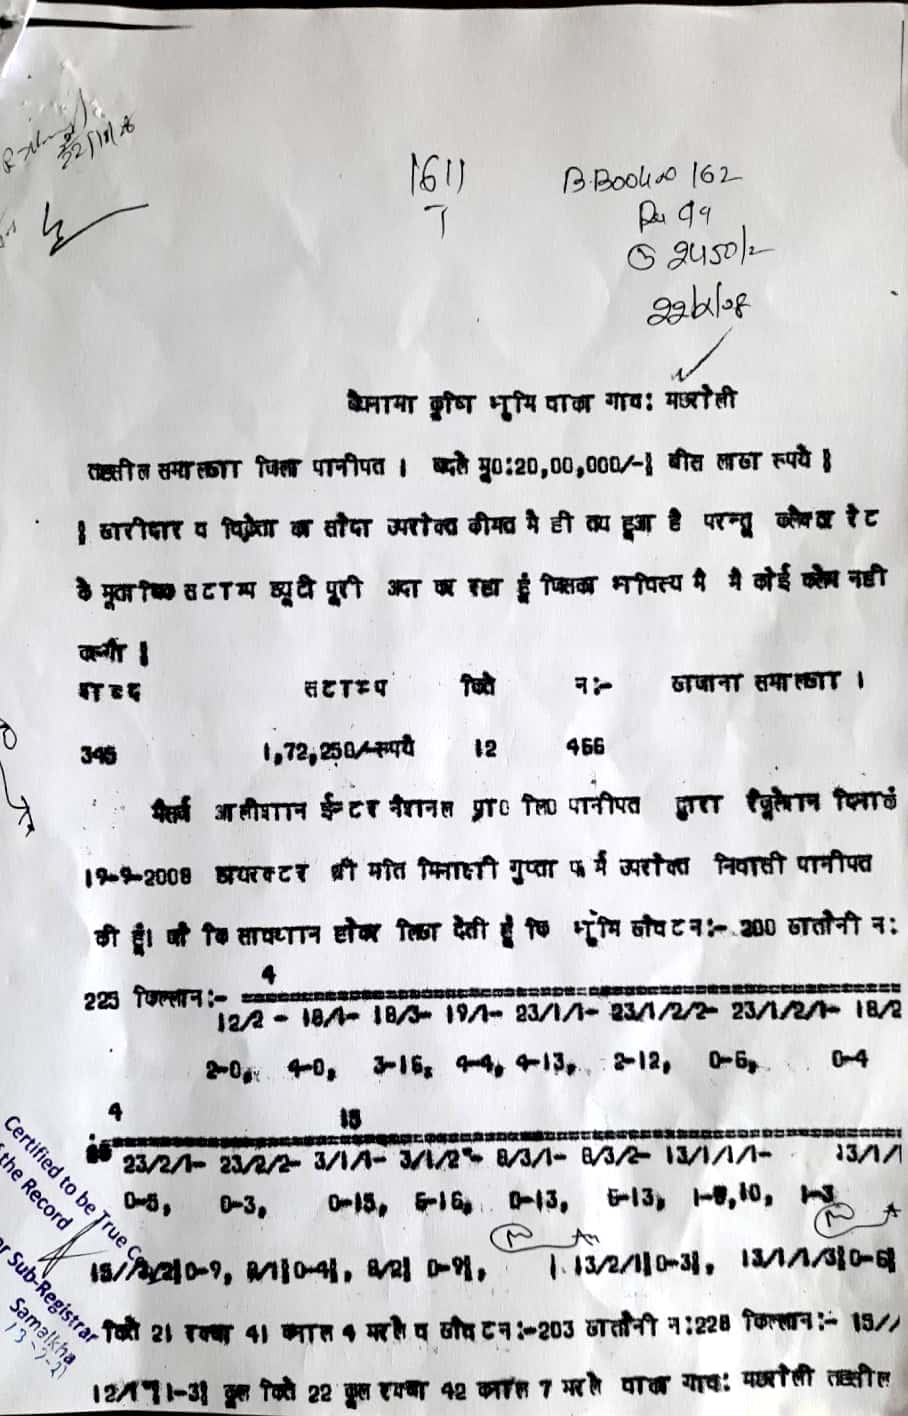 22/10/08
1611
T
B.Book no 162
2450/-
22/10/08
बैनामा कृषि भूमि वाका गाव: मछरोली
तहसील समालखा जिला पानीपत । बदले मु0:20,00,000/-{ बीस लाख रूपये }
{ खरीददार व विक्रेता का सौदा उपरोक्त कीमत मै ही तय हुआ है परन्तू कलैक्टर रेट
के मूताबिक सटाम्प ड्यूटी पूरी अदा कर रहा हूं जिसका भविष्य मै मै कोई कलेम नही
करूगीं }
शब्द सटाम्प किते न:- खजाना समालखा ।
345 1,72,250/-रूपये 12 466
मैसर्ज आलीशान ईन्टरनैशनल प्रा० लि० पानीपत द्वारा रैजुलेशन दिनाकं
19-9-2008 डायरेक्टर श्री मति मिनाक्षी गुप्ता फर्म उपरोक्त निवासी पानीपत
की हूं। जो कि सावधान होकर लिख देती हूं कि भूमि खेवट न:- 200 खातोनी न:
4
225 किल्लान:-
12/2 - 18/1- 18/3- 19/1- 23/1/1- 23/1/2/2- 23/1/2/1- 18/2
2-0, 4-0, 3-16, 4-4, 4-13, 2-12, 0-6, 0-4
4 15
23/2/1- 23/2/2- 3/1/1- 3/1/2- 8/3/1- 8/3/2- 13/1/1/1- 13/1/1
0-5, 0-3, 0-15, 6-16, 0-13, 6-13, 1-3
0-9, 8/1{0-4}, 8/2{ 0-9}, 13/2/1{0-3}, 13/1/1/3{0-6}
किते 21 रकबा 41 कनाल 4 मरले व खेवट न:-203 खातोनी न:228 किल्लान:- 15//
{1-3} कूल किते 22 कूल रकबा 42 कनाल 7 मरले वाका गाव: मछरोली तहसील
Certified to be True Co
f the Record
r Sub-Registrar
Samalkha